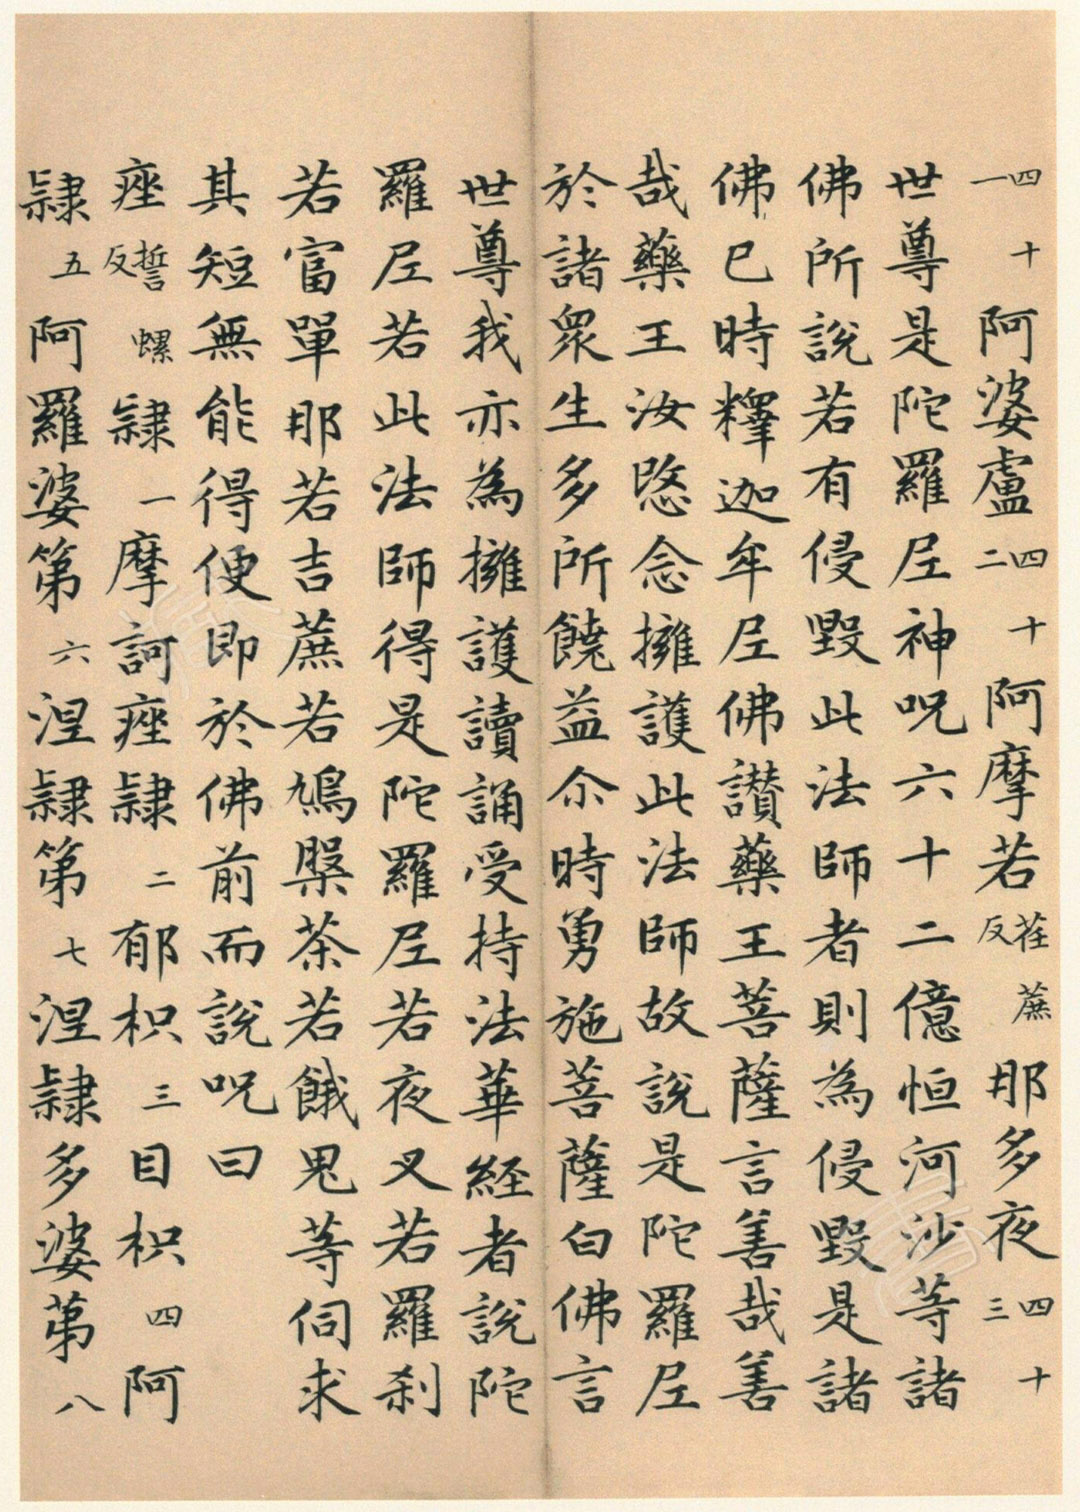 四十一阿婆盧四十二阿摩若荏蔗反那多夜四十三
世尊是陀羅尼神呪六十二億恒河沙等諸
佛所說若有侵毀此法師者則為侵毀是諸
佛已時釋迦牟尼佛讃藥王菩薩言善哉善
哉藥王汝愍念擁護此法師故說是陀羅尼
於諸眾生多所饒益尒時勇施菩薩白佛言
世尊我亦為擁護讀誦受持法華経者說陀
羅尼若此法師得是陀羅尼若夜叉若羅刹
若富單那若吉蔗若鳩槃茶若餓鬼等伺求
其短無能得便即於佛前而說呪曰
痤誓螺反隸一摩訶痤隸二郁枳三目枳四阿
隸五阿羅婆第六涅隸第七涅隸多婆第八